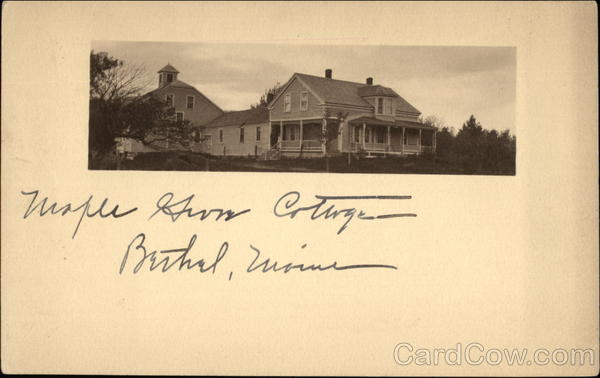 Maple Grove Cottage
Bethel, Maine
CardCow.com